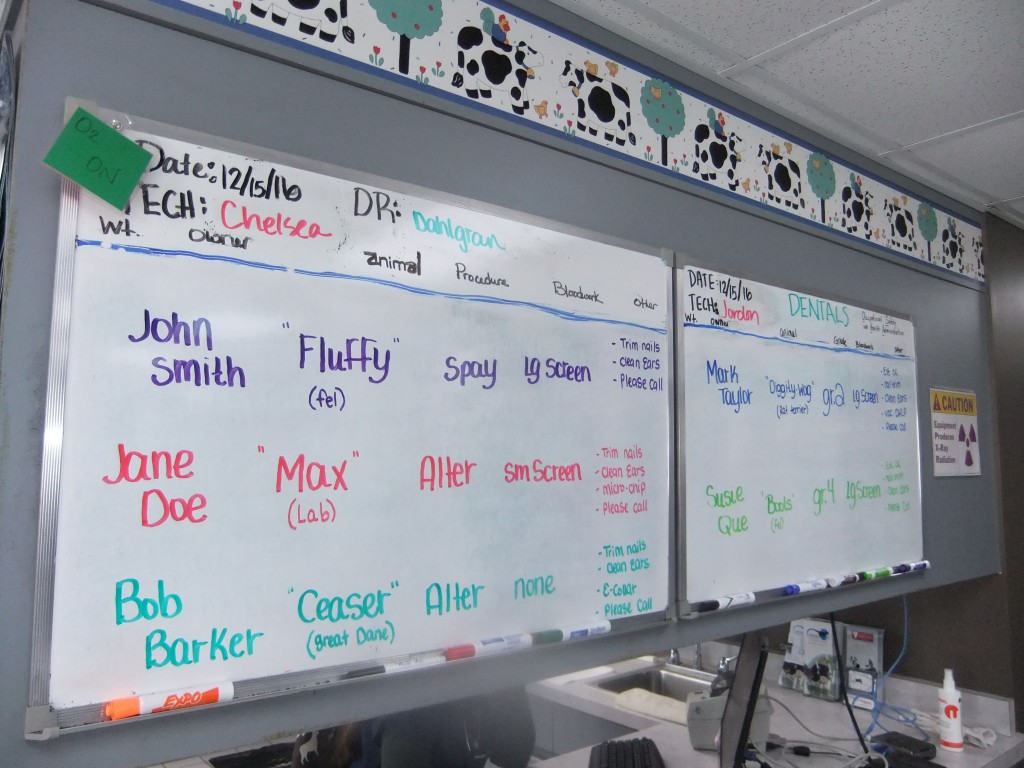 O2
ON
Date: 12/15/16
TECH: Chelsea
DR: Dahlgran
Wt. owner animal Procedure Bloodwork other
John Smith
"Fluffy"
(fel)
Spay
lg Screen
- Trim nails
- Clean Ears
- Please call
Jane Doe
"Max"
(Lab)
Alter
sm Screen
- Trim nails
- Clean Ears
- micro-chip
- Please call
Bob Barker
"Ceaser"
(Great Dane)
Alter
none
- Trim nails
- Clean Ears
- E-Collar
- Please Call
EXPO
DATE: 12/15/16
TECH: Jordon
DENTALS
Wt. owner animal Grade Bloodwork other
Mark Taylor
"Diggity wag"
(Rat terrier)
gr.2
lg Screen
- nail trim
- Clean Ears
- Please Call
Susie Que
"Boots"
(fel)
gr.4
lg Screen
- nail trim
- Clean Ears
- Please Call
CAUTION
Equipment
Produces
X-Ray
Radiation